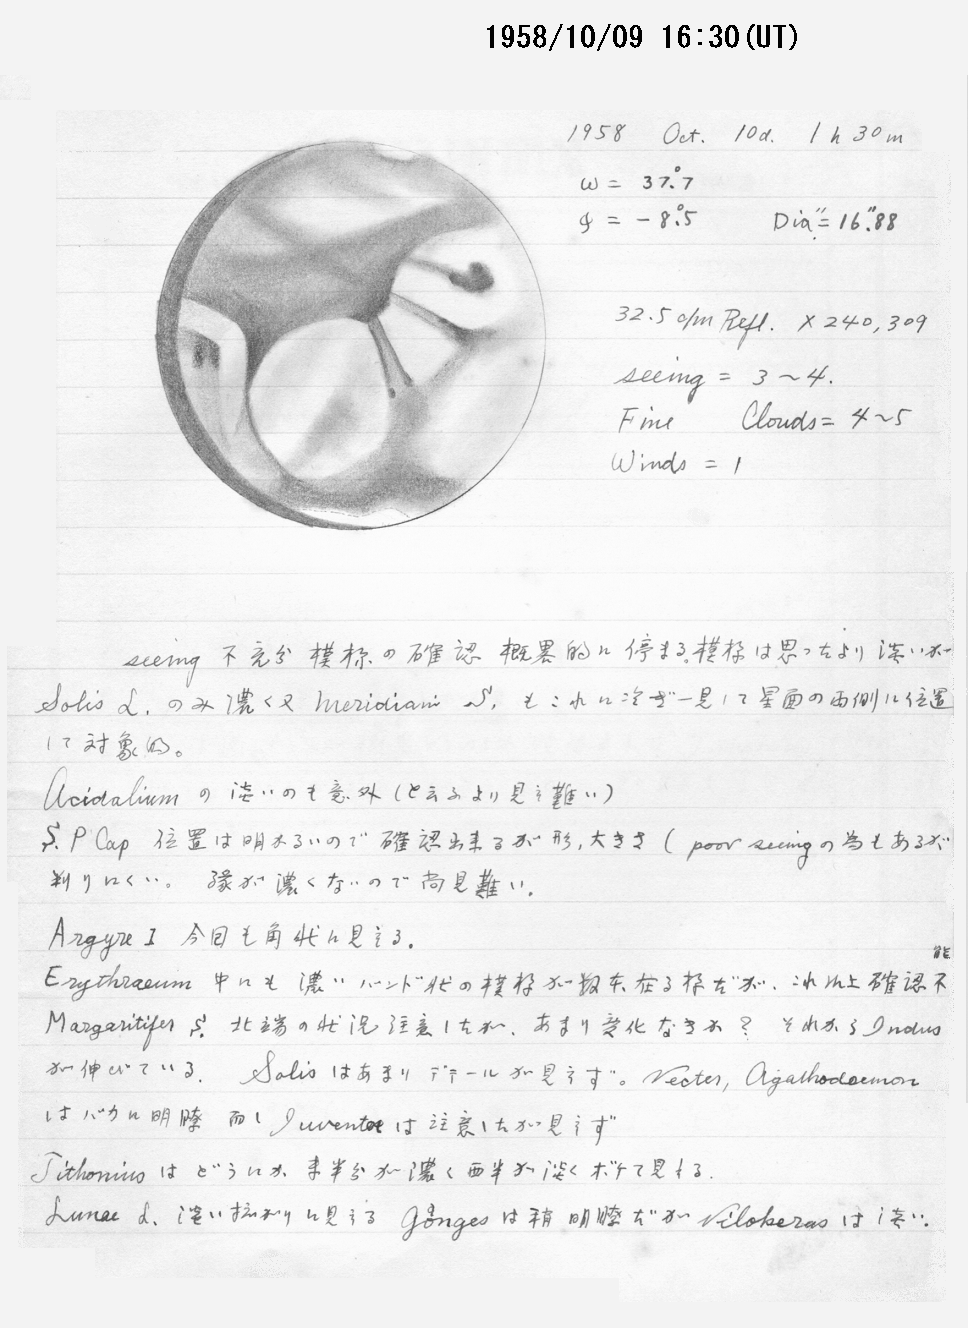 1958/10/09 16:30(UT)
1958 Oct. 10d. 1h 30m
ω = 37.°7
φ = -8.°5 Dia = 16."88
32.5 cm Refl. × 240, 309
seeing = 3~4.
Fine Clouds = 4~5
Winds = 1
seeing 不充分 模様の確認 概略的に停まる。模様は思ったより淡いが
Solis L. のみ濃く又 Meridiani S. もこれに次ぎ一見して星面の両側に位置
して対象的。
Acidalium の淡いのも意外(と云ふより見え難い)
S. P Cap 位置は明かるいので確認出来るが形,大きさ ( poor seeing の為もあるが
判りにくい。 縁が濃くないので尚見難い.
Argyre I 今回も角状に見える.
Erythraeum 中にも濃いバンド状の模様が数本在る様だが、これ以上確認不能
Margaritifer S. 北端の状況注意したが、あまり変化なきか? それから Indus
が伸びている. Solis はあまりデテールが見えず。 Necter, Agathodaemon
はバカに明瞭 而し Juventae は注意したが見えず
Tithonius はどういふか 東半分が濃く西半が淡くボケて見える.
Lunae L. 淡い拡がりに見える Ganges は稍明瞭だが Nilokeras は淡い.